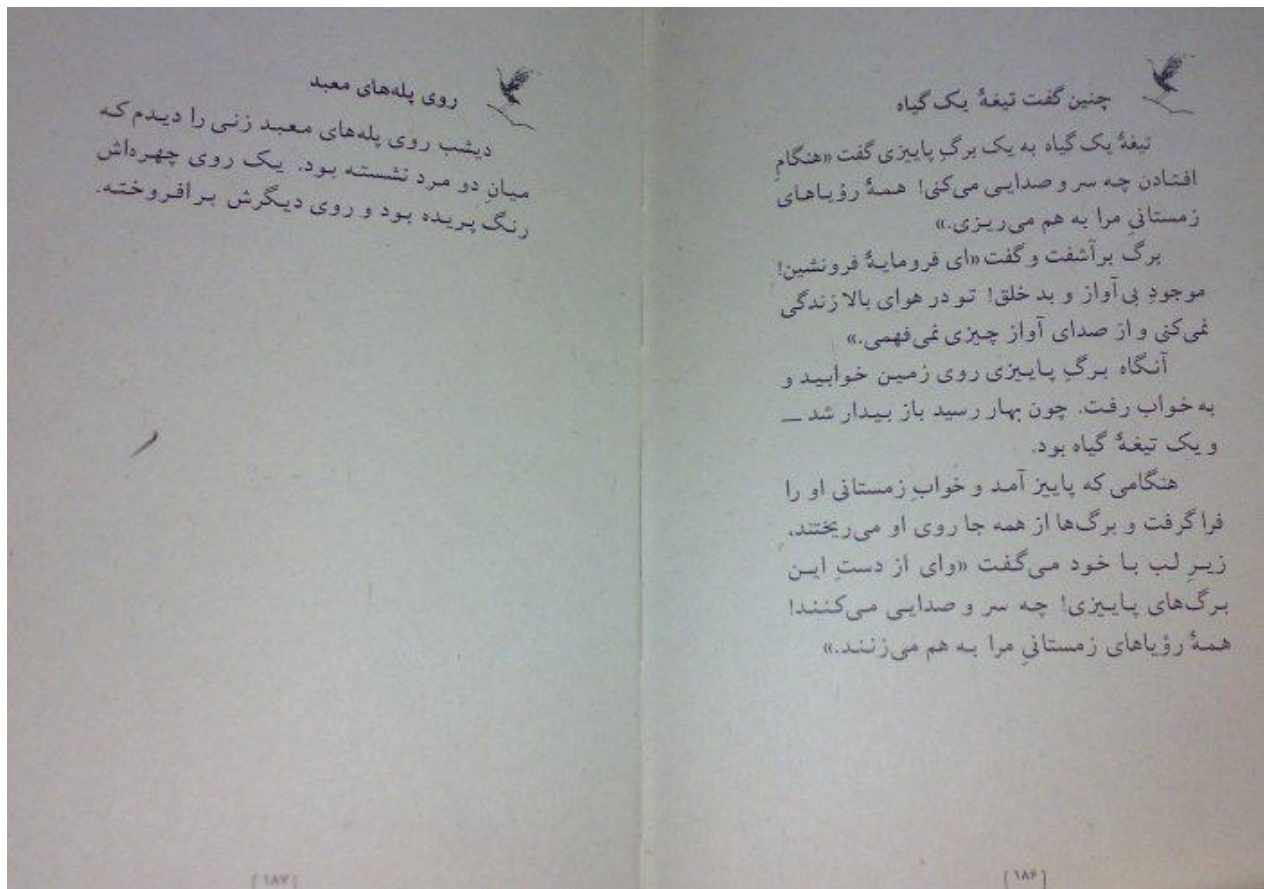 چنین گفت تیغهٔ یک گیاه
تیغهٔ یک گیاه به یک برگِ پاییزی گفت «هنگامِ
افتادن چه سر و صدایی می‌کنی! همهٔ رؤیاهای
زمستانیِ مرا به هم می‌ریزی.»
برگ برآشفت و گفت «ای فرومایهٔ فرونشین!
موجودِ بی‌آواز و بد خلق! تو در هوای بالا زندگی
نمی‌کنی و از صدای آواز چیزی نمی‌فهمی.»
آنگاه برگِ پاییزی روی زمین خوابید و
به خواب رفت. چون بهار رسید باز بیدار شد —
و یک تیغهٔ گیاه بود.
هنگامی که پاییز آمد و خوابِ زمستانی او را
فرا گرفت و برگ‌ها از همه جا روی او می‌ریختند،
زیرِ لب با خود می‌گفت «وای از دستِ این
برگ‌های پاییزی! چه سر و صدایی می‌کنند!
همهٔ رؤیاهای زمستانیِ مرا به هم می‌زنند.»
[۱۸۶]
روی پله‌های معبد
دیشب روی پله‌های معبد زنی را دیدم که
میانِ دو مرد نشسته بود. یک روی چهره‌اش
رنگ پریده بود و روی دیگرش برافروخته.
[۱۸۷]